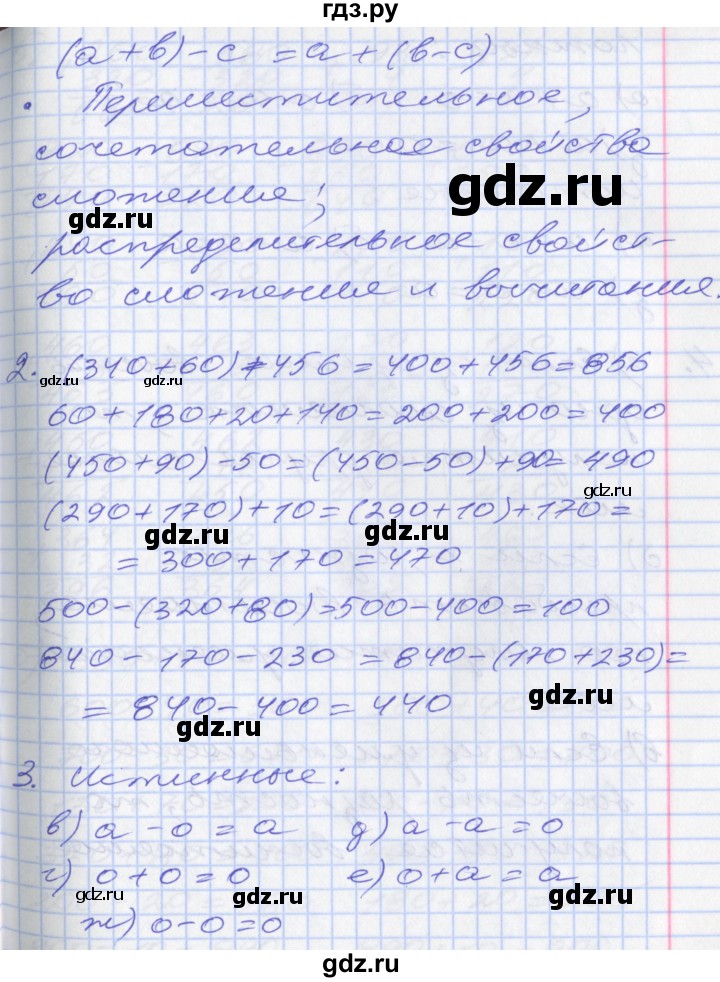 гдз.ру
(a+b)-c = a+(b-c)
• Переместительное,
сочетательное свойства
gdz.ru
сложения;
gdz.ru
распределительное свойст-
во сложения и вычитания.
2. (340+60)+456=400+456=856
gdz.ru gdz.ru
60+180+20+140=200+200=400
(450+90)-50=(450-50)+90=490
gdz.ru
(290+170)+10=(290+10)+170=
gdz.ru gdz.ru
=300+170=470
500-(320+80)=500-400=100
840-170-230=840-(170+230)=
gdz.ru
=840-400=440
gdz.ru
3. Истинные:
в) a-0=a д) a-a=0
г) 0+0=0 е) 0+a=a
gdz.ru gdz.ru gdz.ru
ж) 0-0=0
gdz.ru